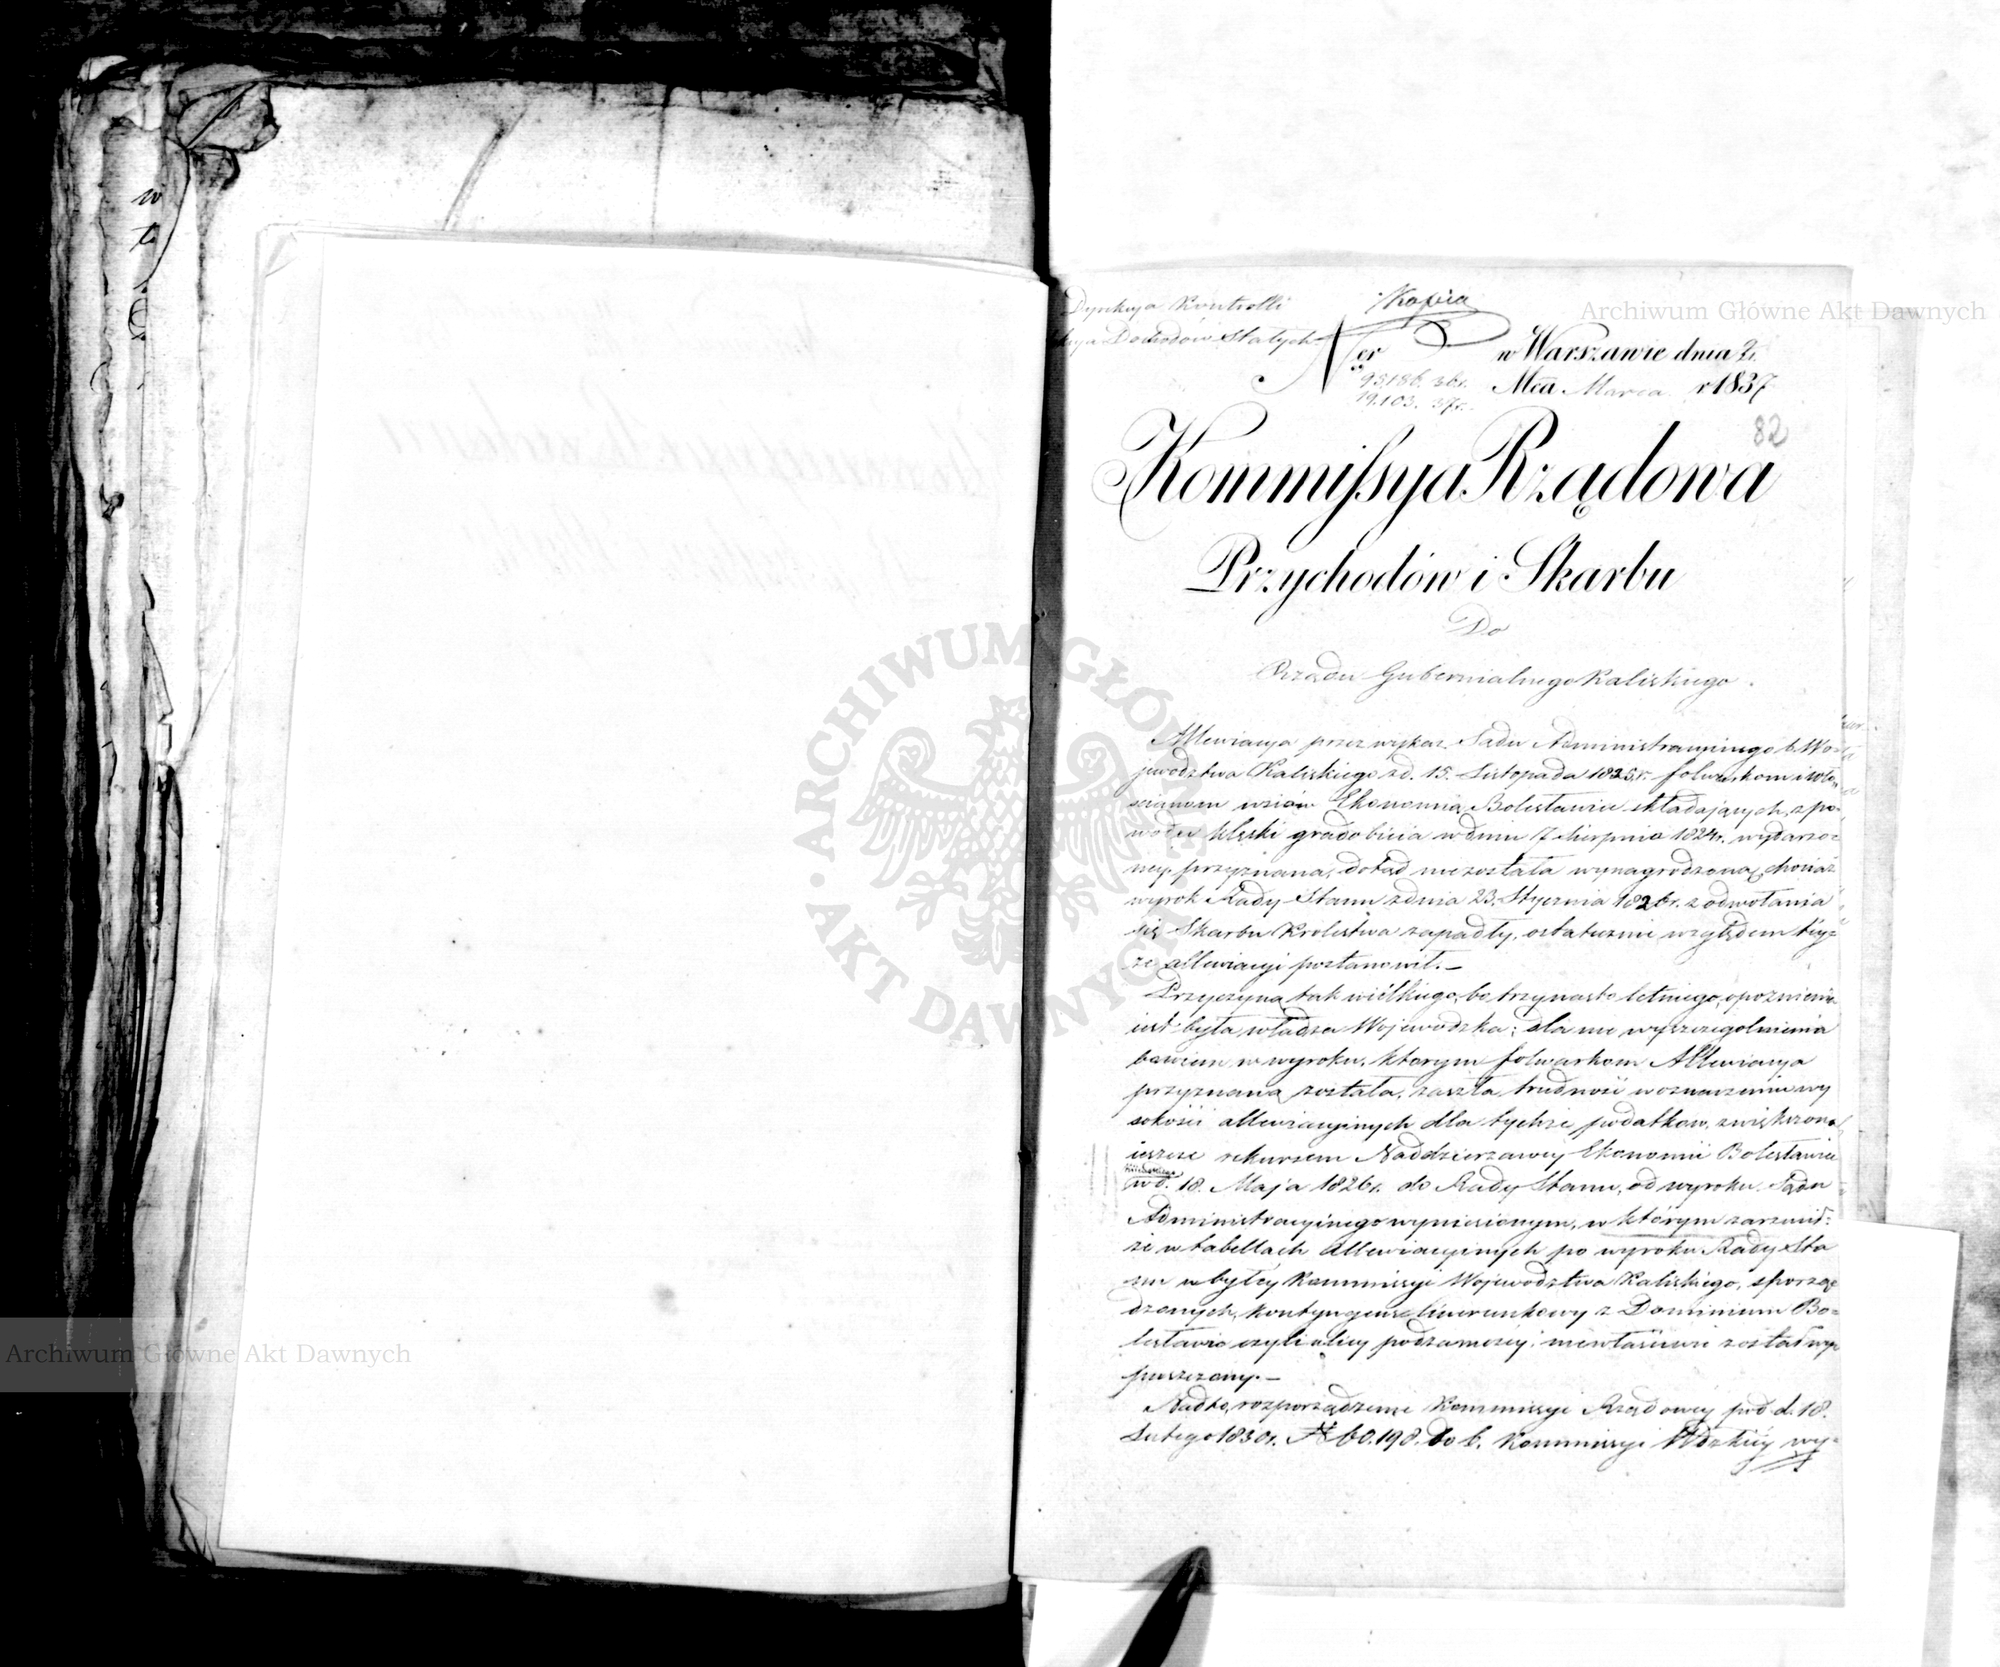 w
te
Dyrekcya Kontrolli
Dochodów Stałych
Kopia
Ner
95186. 36r.
19.103. 37r.
w Warszawie dnia 2.
Mca Marca r 1837
82
Kommissya Rządowa
Przychodów i Skarbu
Do
Rządu Gubernialnego Kaliskiego.
Allewiacya przez wykaz Sądu Administracyinego b. Wo-
jewodztwa Kaliskiego z d. 15. Listopada 1825r. folwarkom i wło-
scianom wsiów Ekonomią Bolesławiec składających, z po-
wodu klęski gradobicia w dniu 7 Sierpnia 1824r. wydarzo-
ney, przyznana, dotąd nie została wynagrodzoną, chociaż
wyrok Rady Stanu z dnia 23. Stycznia 1826r. z odwołania
się Skarbu Krolestwa zapadły, ostatecznie względem tey-
że allewiacyi postanowił. —
Przyczyną tak wielkiego, bo trzynasto letniego, opoznienia
iest była władza Wojewodzka; dla nie wyszczegolnienia
bowiem w wyroku, ktorym folwarkom Allewiacya
przyznaną została, zaszła trudność w oznaczeniu wy
sokości allewiacyinych dla tychże podatkow, zwiększona
ieszcze rekursem Naddzierzawcy Ekonomii Bolesławiec
w d. 18. Maja 1826r. do Rady Stanu, od wyroku Sądu
Administracyinego wyniesionym, w którym zarzucił:
że w tabellach allewiacyinych po wyroku Rady Sta
nu w byłéy Kommissyi Wojewodztwa Kaliskiego, sporzą
dzonych, kontyngens liwerunkowy z Dominium Bo-
lesławiec czyli ulicy podzamczey, niewłaściwie został wy
puszczony. —
Nadto, rozporządzenie Kommissyi Rządowéy pod d. 18.
Lutego 1830r. N 60.198. do b. Kommissyi Wdzkiéy wy-
Archiwum Główne Akt Dawnych
Archiwum Główne Akt Dawnych
ARCHIWUM GŁÓWNE • AKT DAWNYCH •